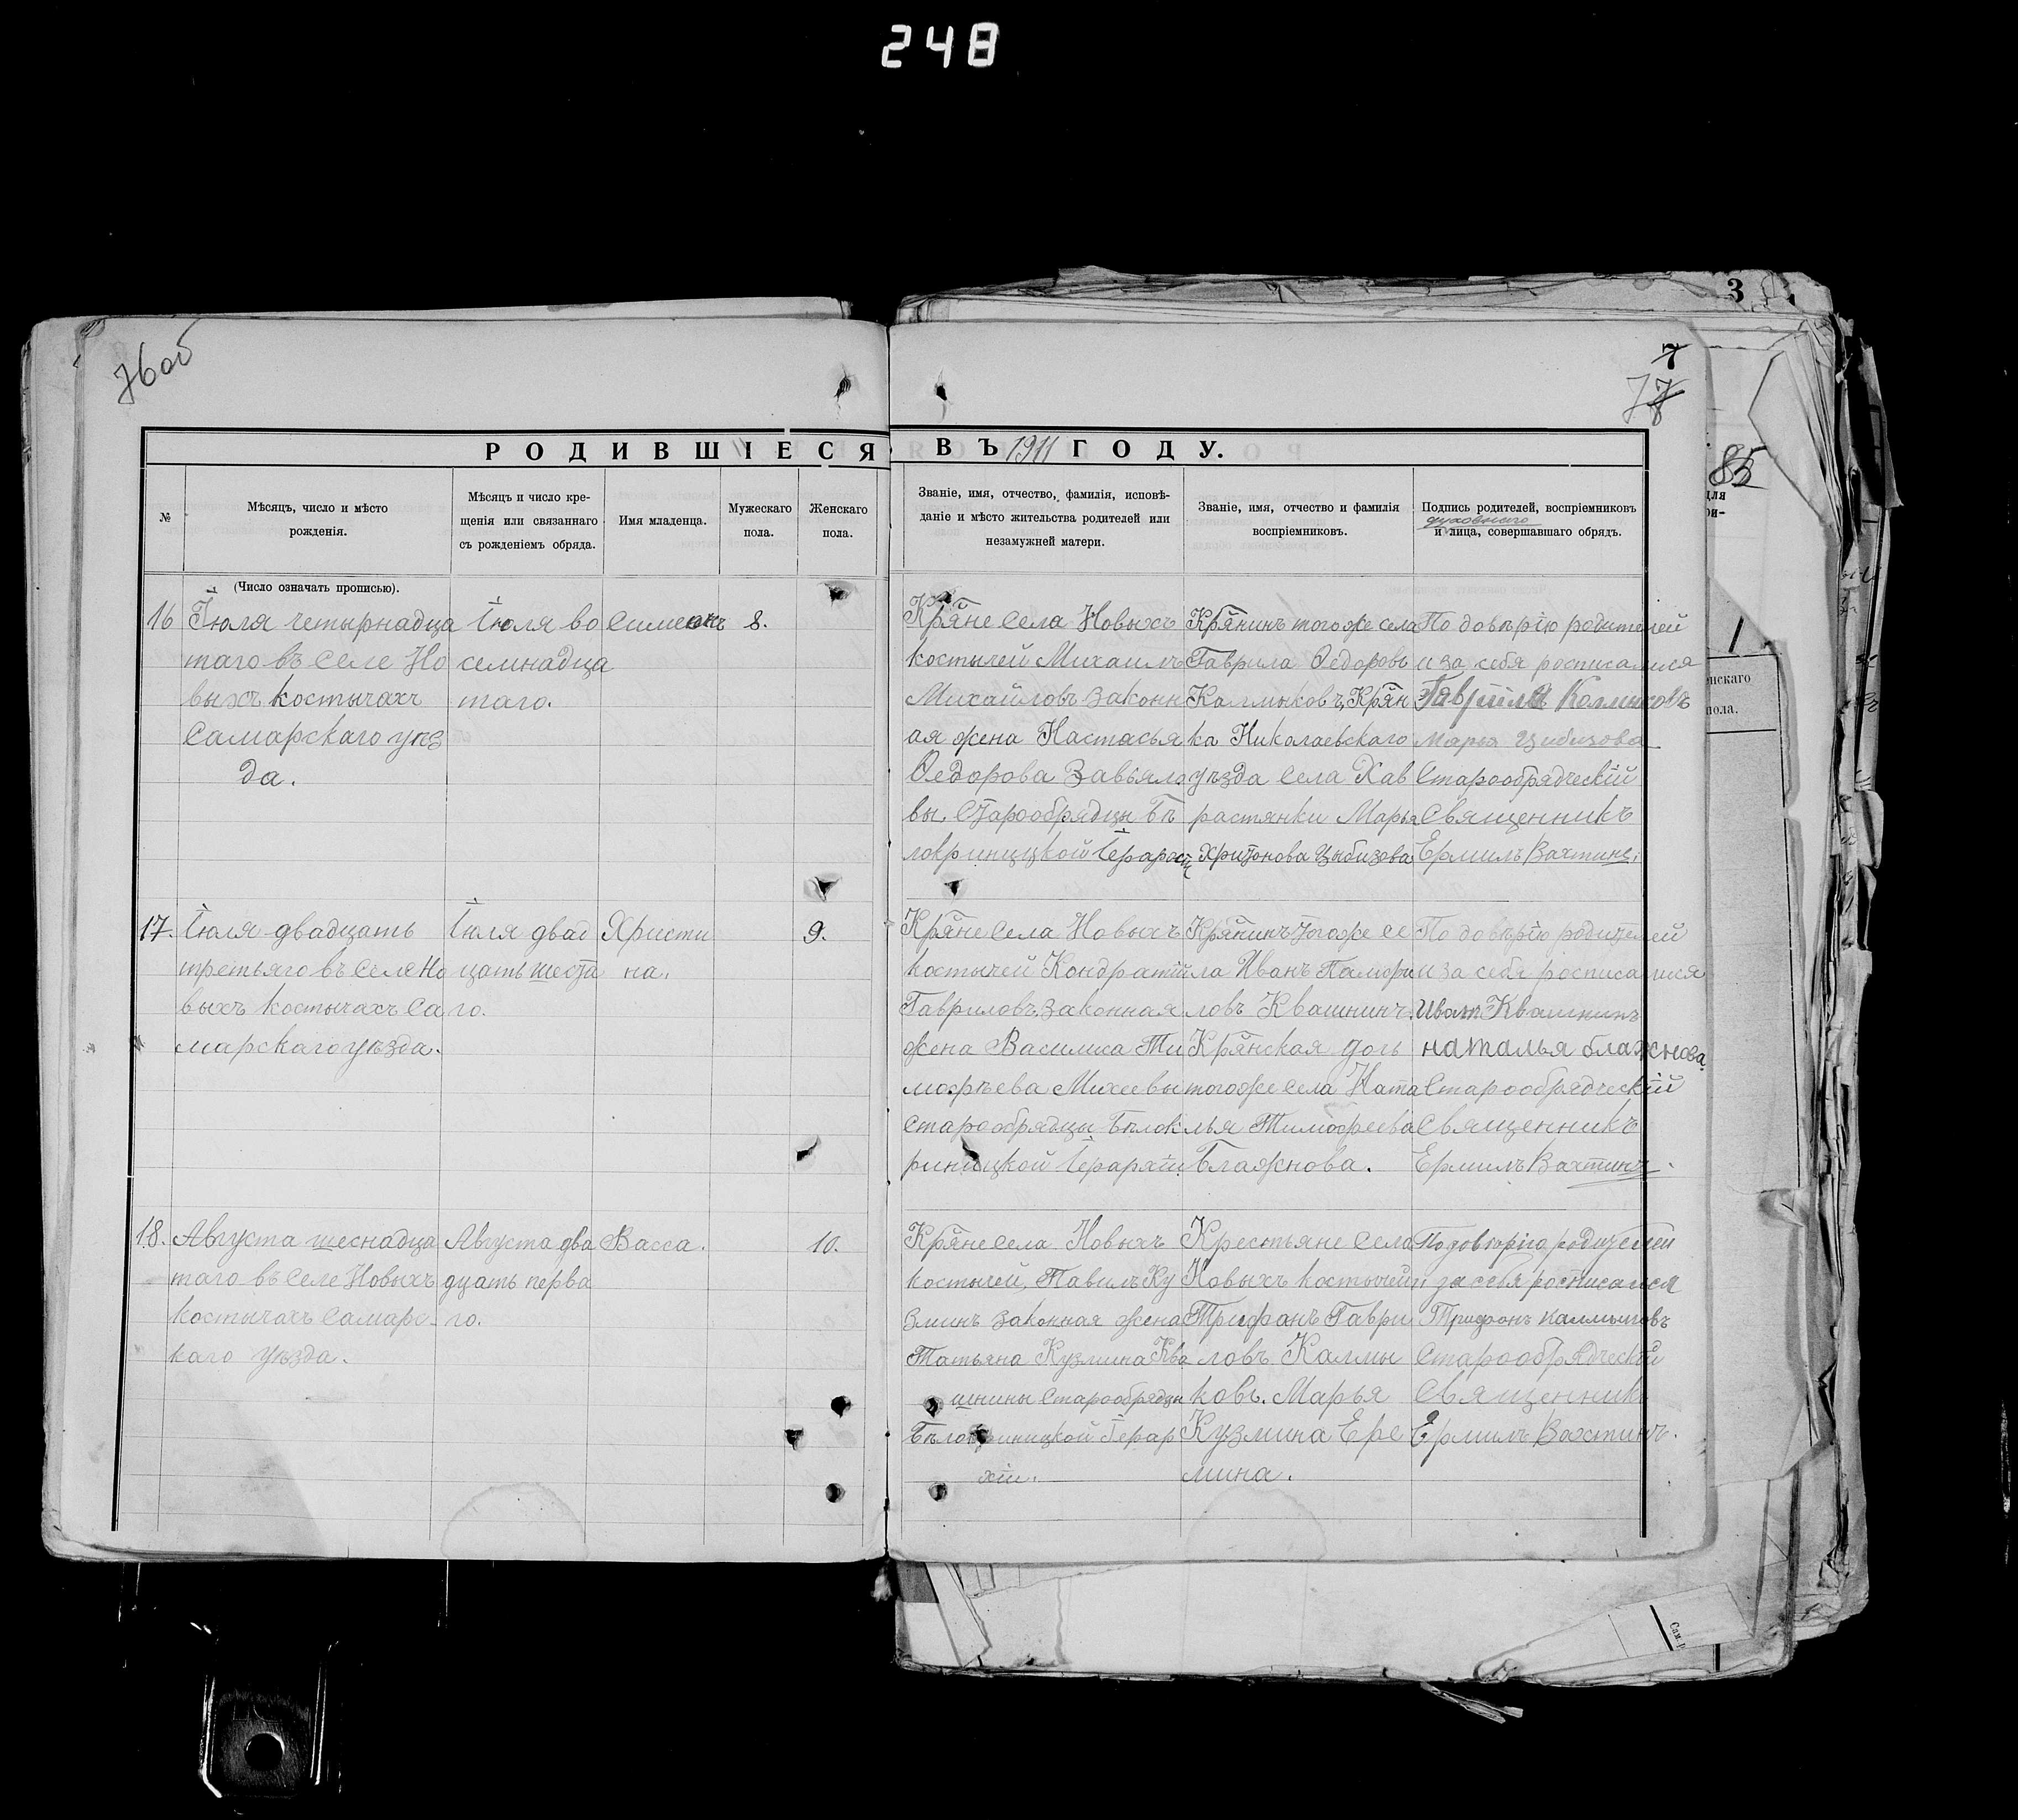 248
76 об
3
7
77
85
РОДИВШІЕСЯ ВЪ 1911 ГОДУ.
№
Мѣсяцъ, число и мѣсто
рожденія.
Мѣсяцъ и число кре-
щенія или связаннаго
съ рожденіемъ обряда.
Имя младенца.
Мужескаго
пола.
Женскаго
пола.
Званіе, имя, отчество, фамилія, исповѣ-
даніе и мѣсто жительства родителей или
незамужней матери.
Званіе, имя, отчество и фамилія
воспріемниковъ.
Подпись родителей, воспріемниковъ
духовнаго
и лица, совершавшаго обрядъ.
(Число означать прописью).
16
Іюля четырнадца
таго въ селе Но
выхъ костычахъ
Самарскаго уѣз
да.
Іюля во
семнадца
таго.
Симеонъ
8.
Кряне села Новыхъ
костычей Михаилъ
Михайловъ законн
ая жена Настасья
Ѳедорова Завьяло
вы. Старообрядцы Бѣ
локриницкой Іерархіи
Крянинъ того же села
Гаврила Ѳедоровъ
Калмыковъ, Крян
ка Николаевскаго
уѣзда села Хав
растянки Марья
Харитонова Цыбизова
По довѣрію родителей
и за себя росписалися
Гаврила Калмыковъ
Марья Цибизова
Старообрядческій
Священникъ
Ермилъ Вахтинъ.
17.
Іюля двадцать
третьяго въ селе Но
выхъ костычахъ Са
марскаго уѣзда.
Іюля двад
цать шеста
го.
Христи
на.
9.
Кряне села Новыхъ
костычей Кондратій
Гавриловъ законная
жена Василиса Ти
мофѣева Михеевы
старообрядцы Бѣлок
риницкой Іерархіи
Крянинъ того же се
ла Иванъ Памфи
ловъ Квашнинъ.
Крянская дочь
того же села Ната
лья Тимофеева
Блажнова.
По довѣрію родителей
и за себя росписалися
Иванъ Квашнинъ
наталья блажнова.
Старообрядческій
Священникъ
Ермилъ Вахтинъ.
18.
Августа шеснадца
таго въ селе Новыхъ
костычахъ Самарс-
каго уѣзда.
Августа два
дцать перва
го.
Васса.
10.
Кряне села Новыхъ
костычей, Павилъ Ку
зминъ законная жена
Татьяна Кузмина Ква
шнины Старообрядцы
Бѣлокриницкой Іерар
хіи.
Крестьяне села
Новыхъ костычей
Трифанъ Гаври
ловъ Калмы
ковъ. Марья
Кузмина Ере
мина.
По довѣрію родителей
и за себя росписался
Трифонъ калмыковъ
Старообрядческій
Священникъ
Ермилъ Вахтинъ.
нскаго
пола.